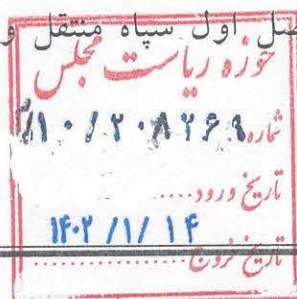 اول سپاه منتقل و
حوزه ریاست مجلس
شماره
تاریخ ورود.....
۱۴۰۲/۱/۱۴
تاریخ خروج.....